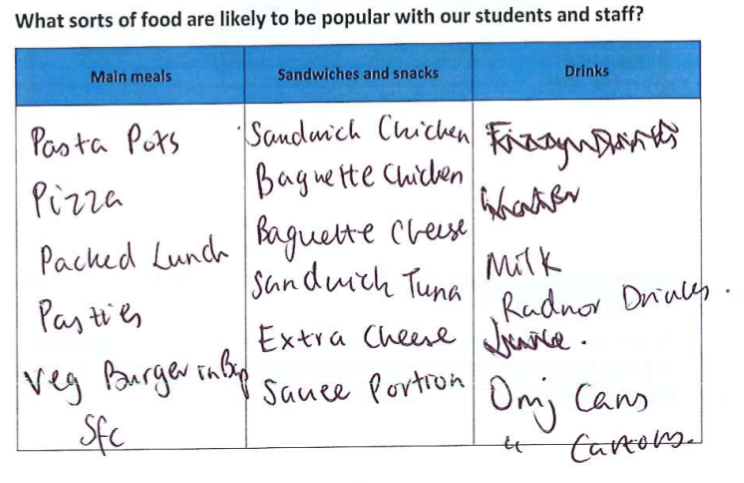 What sorts of food are likely to be popular with our students and staff?
Main meals
Pasta Pots
Pizza
Packed Lunch
Pasties
Veg Burger in Bap
Sfc
Sandwiches and snacks
Sandwich Chicken
Baguette Chicken
Baguette Cheese
Sandwich Tuna
Extra Cheese
Sauce Portion
Drinks
Milk
Radnor Drinks.
Juice.
Omj Cans
" Cartons.